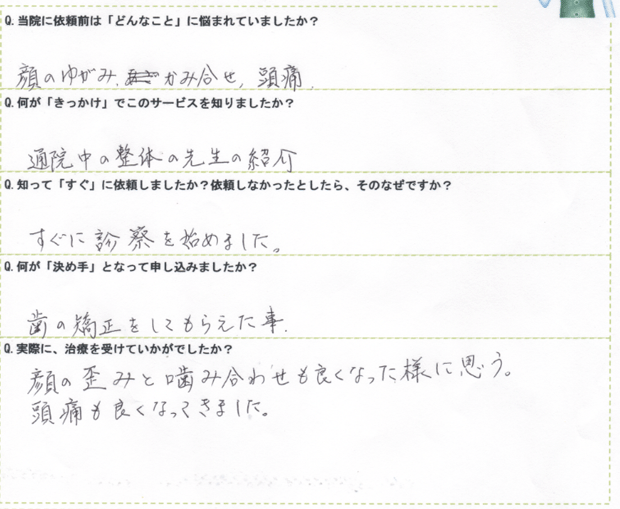 Q.当院に依頼前は「どんなこと」に悩まれていましたか？
顔のゆがみ、かみ合せ、頭痛.
Q.何が「きっかけ」でこのサービスを知りましたか？
通院中の整体の先生の紹介
Q.知って「すぐ」に依頼しましたか？依頼しなかったとしたら、そのなぜですか？
すぐに診察を始めました。
Q.何が「決め手」となって申し込みましたか？
歯の矯正をしてもらえた事.
Q.実際に、治療を受けていかがでしたか？
顔の歪みと噛み合わせも良くなった様に思う。
頭痛も良くなってきました。